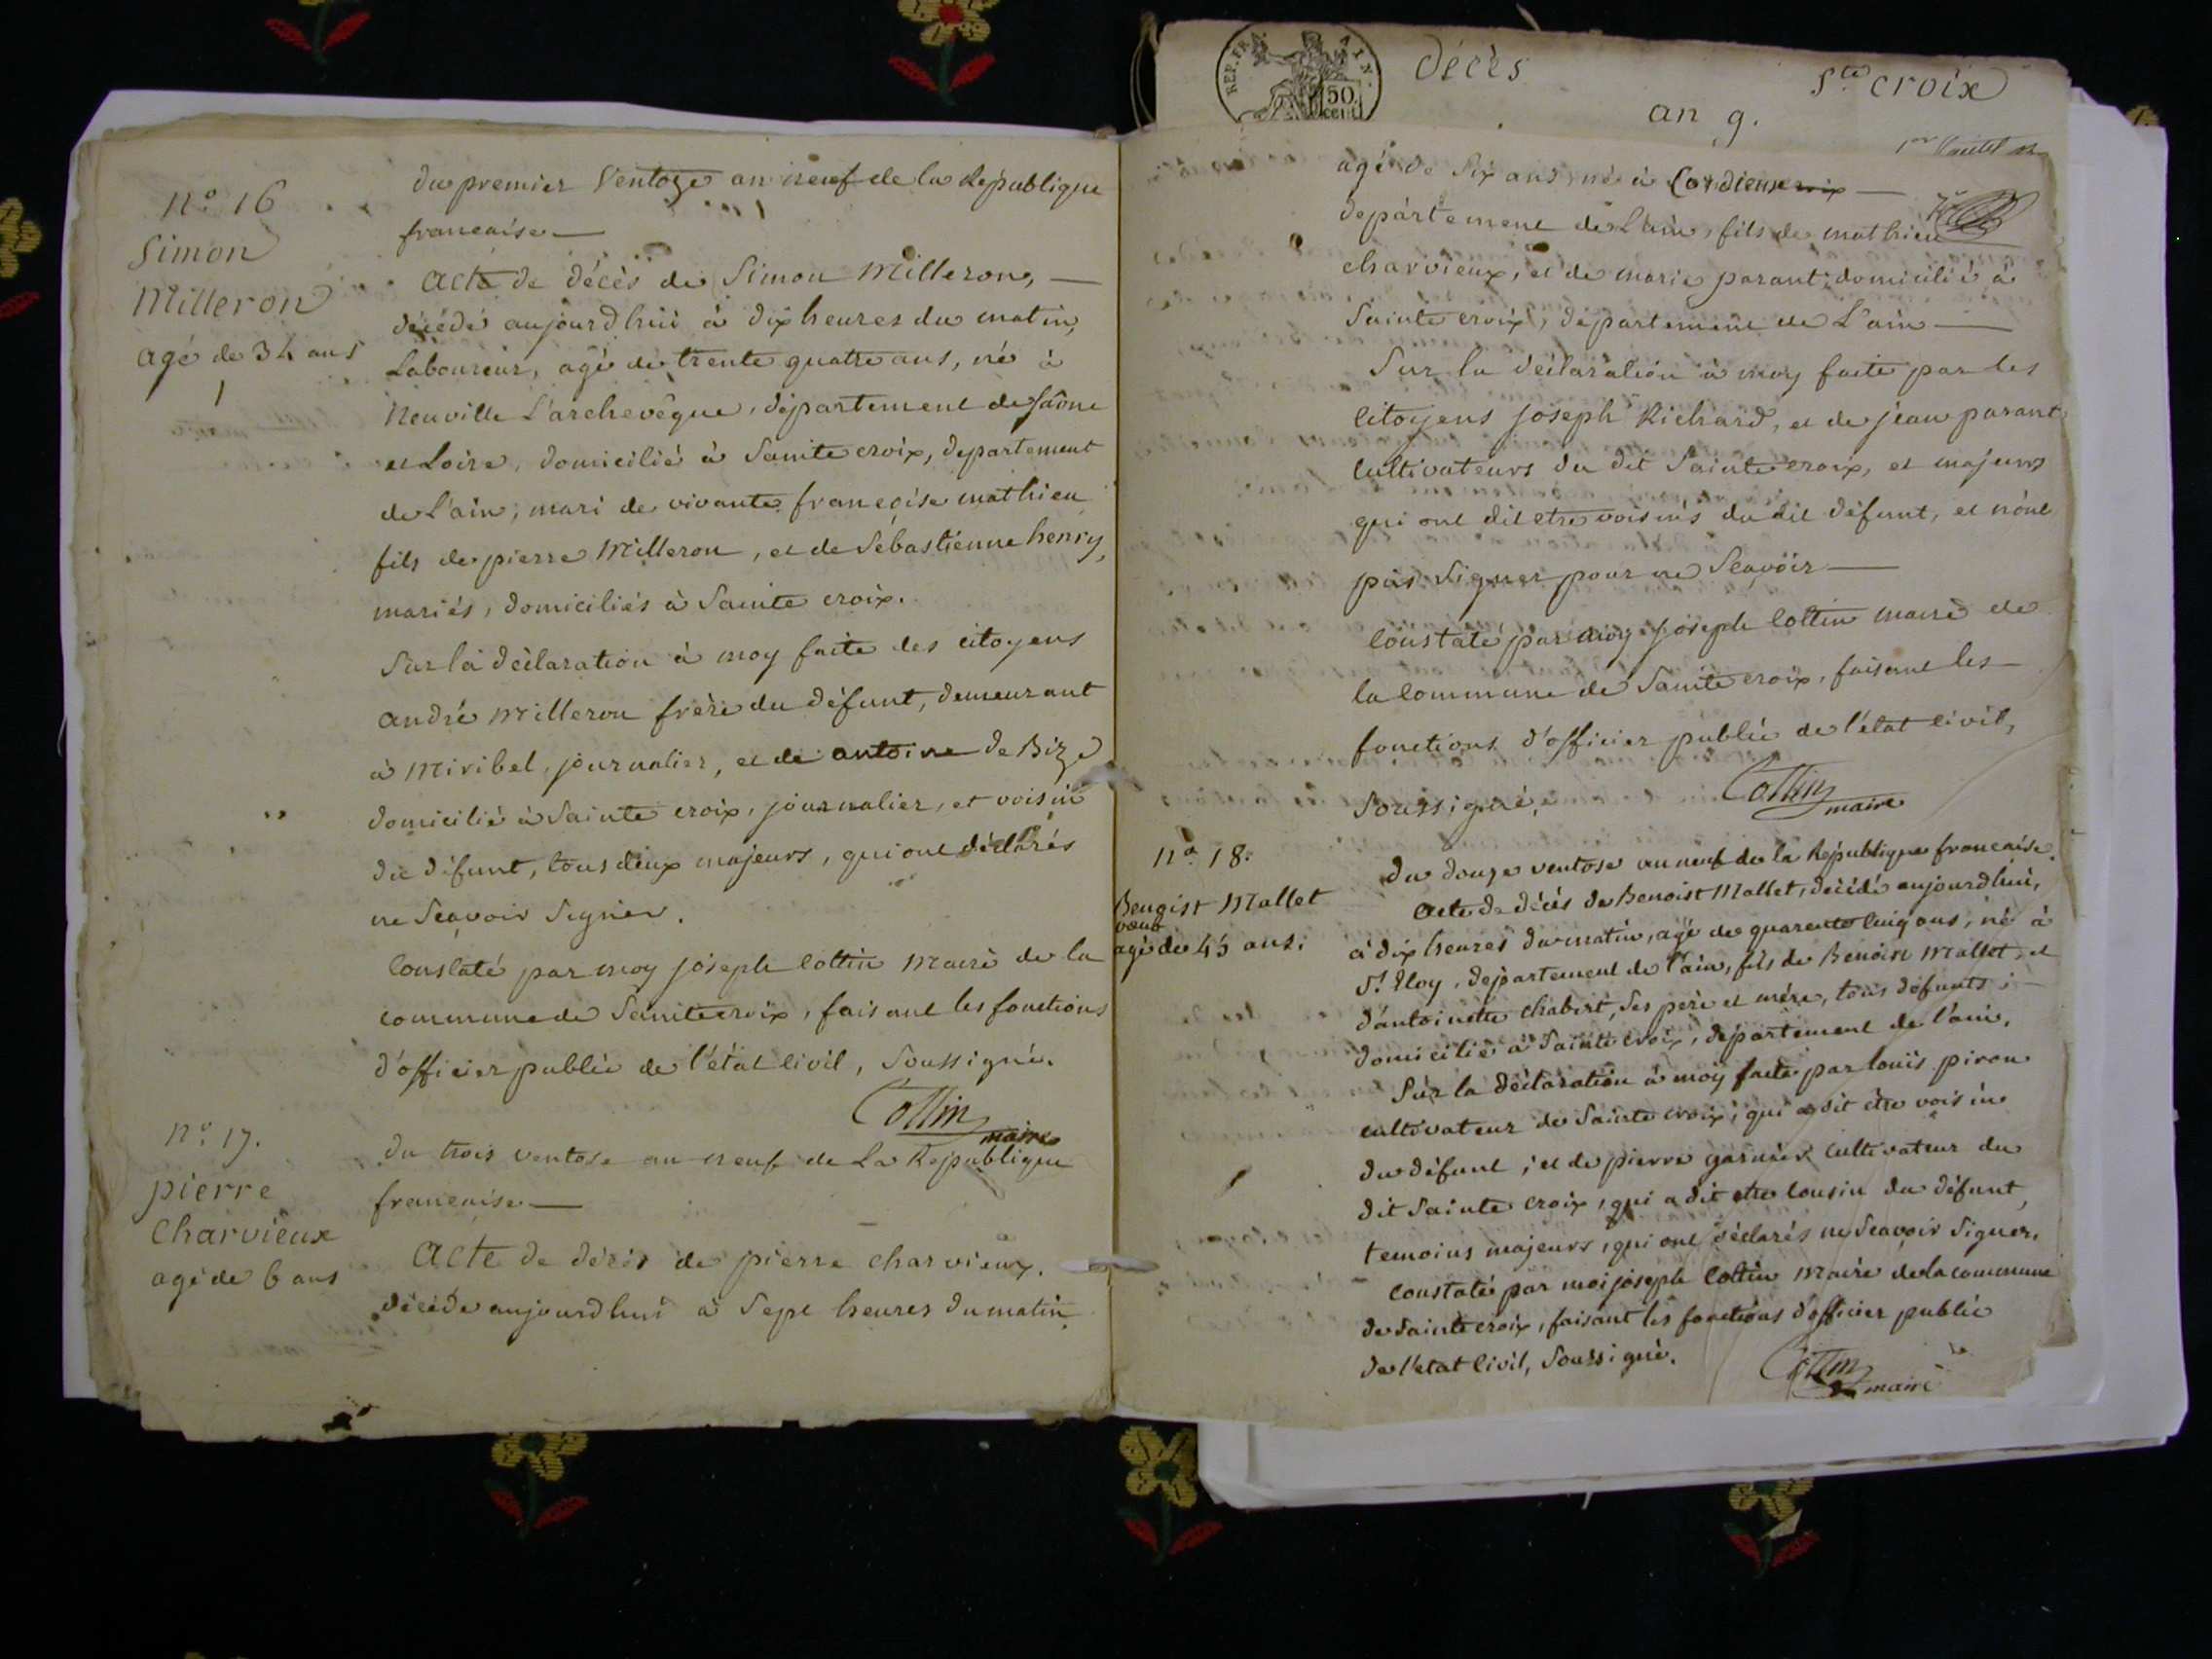 n.o 16
Simon
Milleron
agé de 34 ans
du premier Ventoze an neuf de la Republique
francaise
acte de décès de Simon Milleron,
décédé aujourdhui à dix heures du matin,
Laboureur, agé de trente quatre ans, né à
Neuville L'archevêque, département de Saône
et Loire, domicilié à Sainte croix, departement
de L'ain, mari de vivante francoise mathieu
fils de pierre Milleron, et de Sébastienne henry,
mariés, domiciliés à Sainte croix.
Sur la déclaration à moy faite des citoyens
andré Milleron frère du défunt, demeurant
à Miribel, journalier, et de antoine de Bize
domicilié à Sainte croix, journalier, et voisin
du défunt, tous deux majeurs, qui ont déclarés
ne Seavoir Signer.
Constaté par moy joseph Cottin Maire de la
commune de Sainte croix, faisant les fonctions
d'officier public de l'état Civil, Soussigné.
Cottin
maire
n.o 17.
pierre
Charvieux
agé de 6 ans
du trois ventose an neuf de La Republique
francaise
Acte de décès de pierre charvieux,
décédé aujourdhui à Sept heures du matin
REP. FRA. AIN.
50
cent
décès
Ste croix
an 9.
agé de Six ans, né à Cordieux
departement de L'ain, fils de mathieu
charvieux, et de marie parant, domicilié à
Sainte croix, departement de L'ain
Sur la déclaration à moy faite par les
Citoyens Joseph Richard, et de jean parant
Cultivateurs du dit Sainte croix, et majeurs
qui ont dit etre voisins du dit défunt, et n'ont
pas Signer pour ne Seavoir
Constaté par moy Joseph Cottin maire de
la Commune de Sainte croix, faisant les
fonctions d'officier public de l'état Civil,
Soussigné.
Cottin
maire
n.o 18.
Benoist Mallet
veuf
agé de 45 ans.
du douze ventose an neuf de la Republique francaise.
acte de décès de Benoist Mallet, décédé aujourdhui,
à dix heures du matin, agé de quarente Cinq ans, né à
St. Eloy, departement de l'ain, fils de Benoist Mallet, et
d'antoinette Chabert, Ses père et mére, tous défunts;
domicilié à Sainte Croix, departement de l'ain.
Sur la déclaration à moy faite par Louis piron
cultivateur de Sainte croix, qui a dit etre voisin
du défunt, et de pierre garnier Cultivateur du
dit Sainte Croix, qui a dit etre Cousin du défunt,
temoins majeurs, qui ont déclarés ne Seavoir Signer.
Constaté par moi joseph Cottin Maire de la commune
de Sainte croix, faisant les fonctions d'officier public
de l'etat Civil, Soussigné.
Cottin
maire